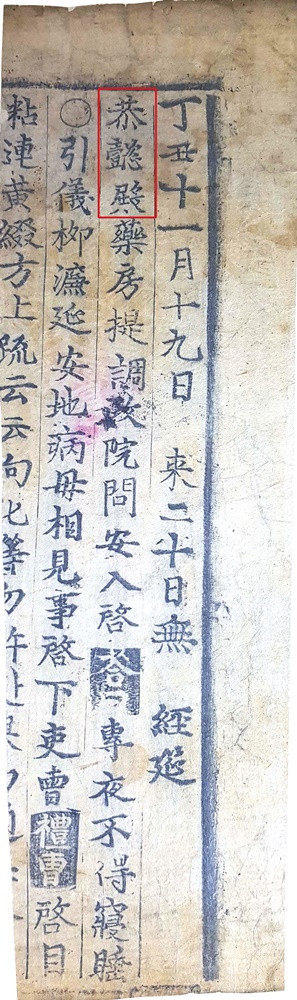 丁丑十一月十九日 来二十日無 經筵
恭懿殿藥房提調政院問安入啓 答曰 專夜不得寢睡
○引儀柳濂延安地病母相見事啓下吏曹 禮曹 啓目
粘連黃綴方上疏云云向化等勿許